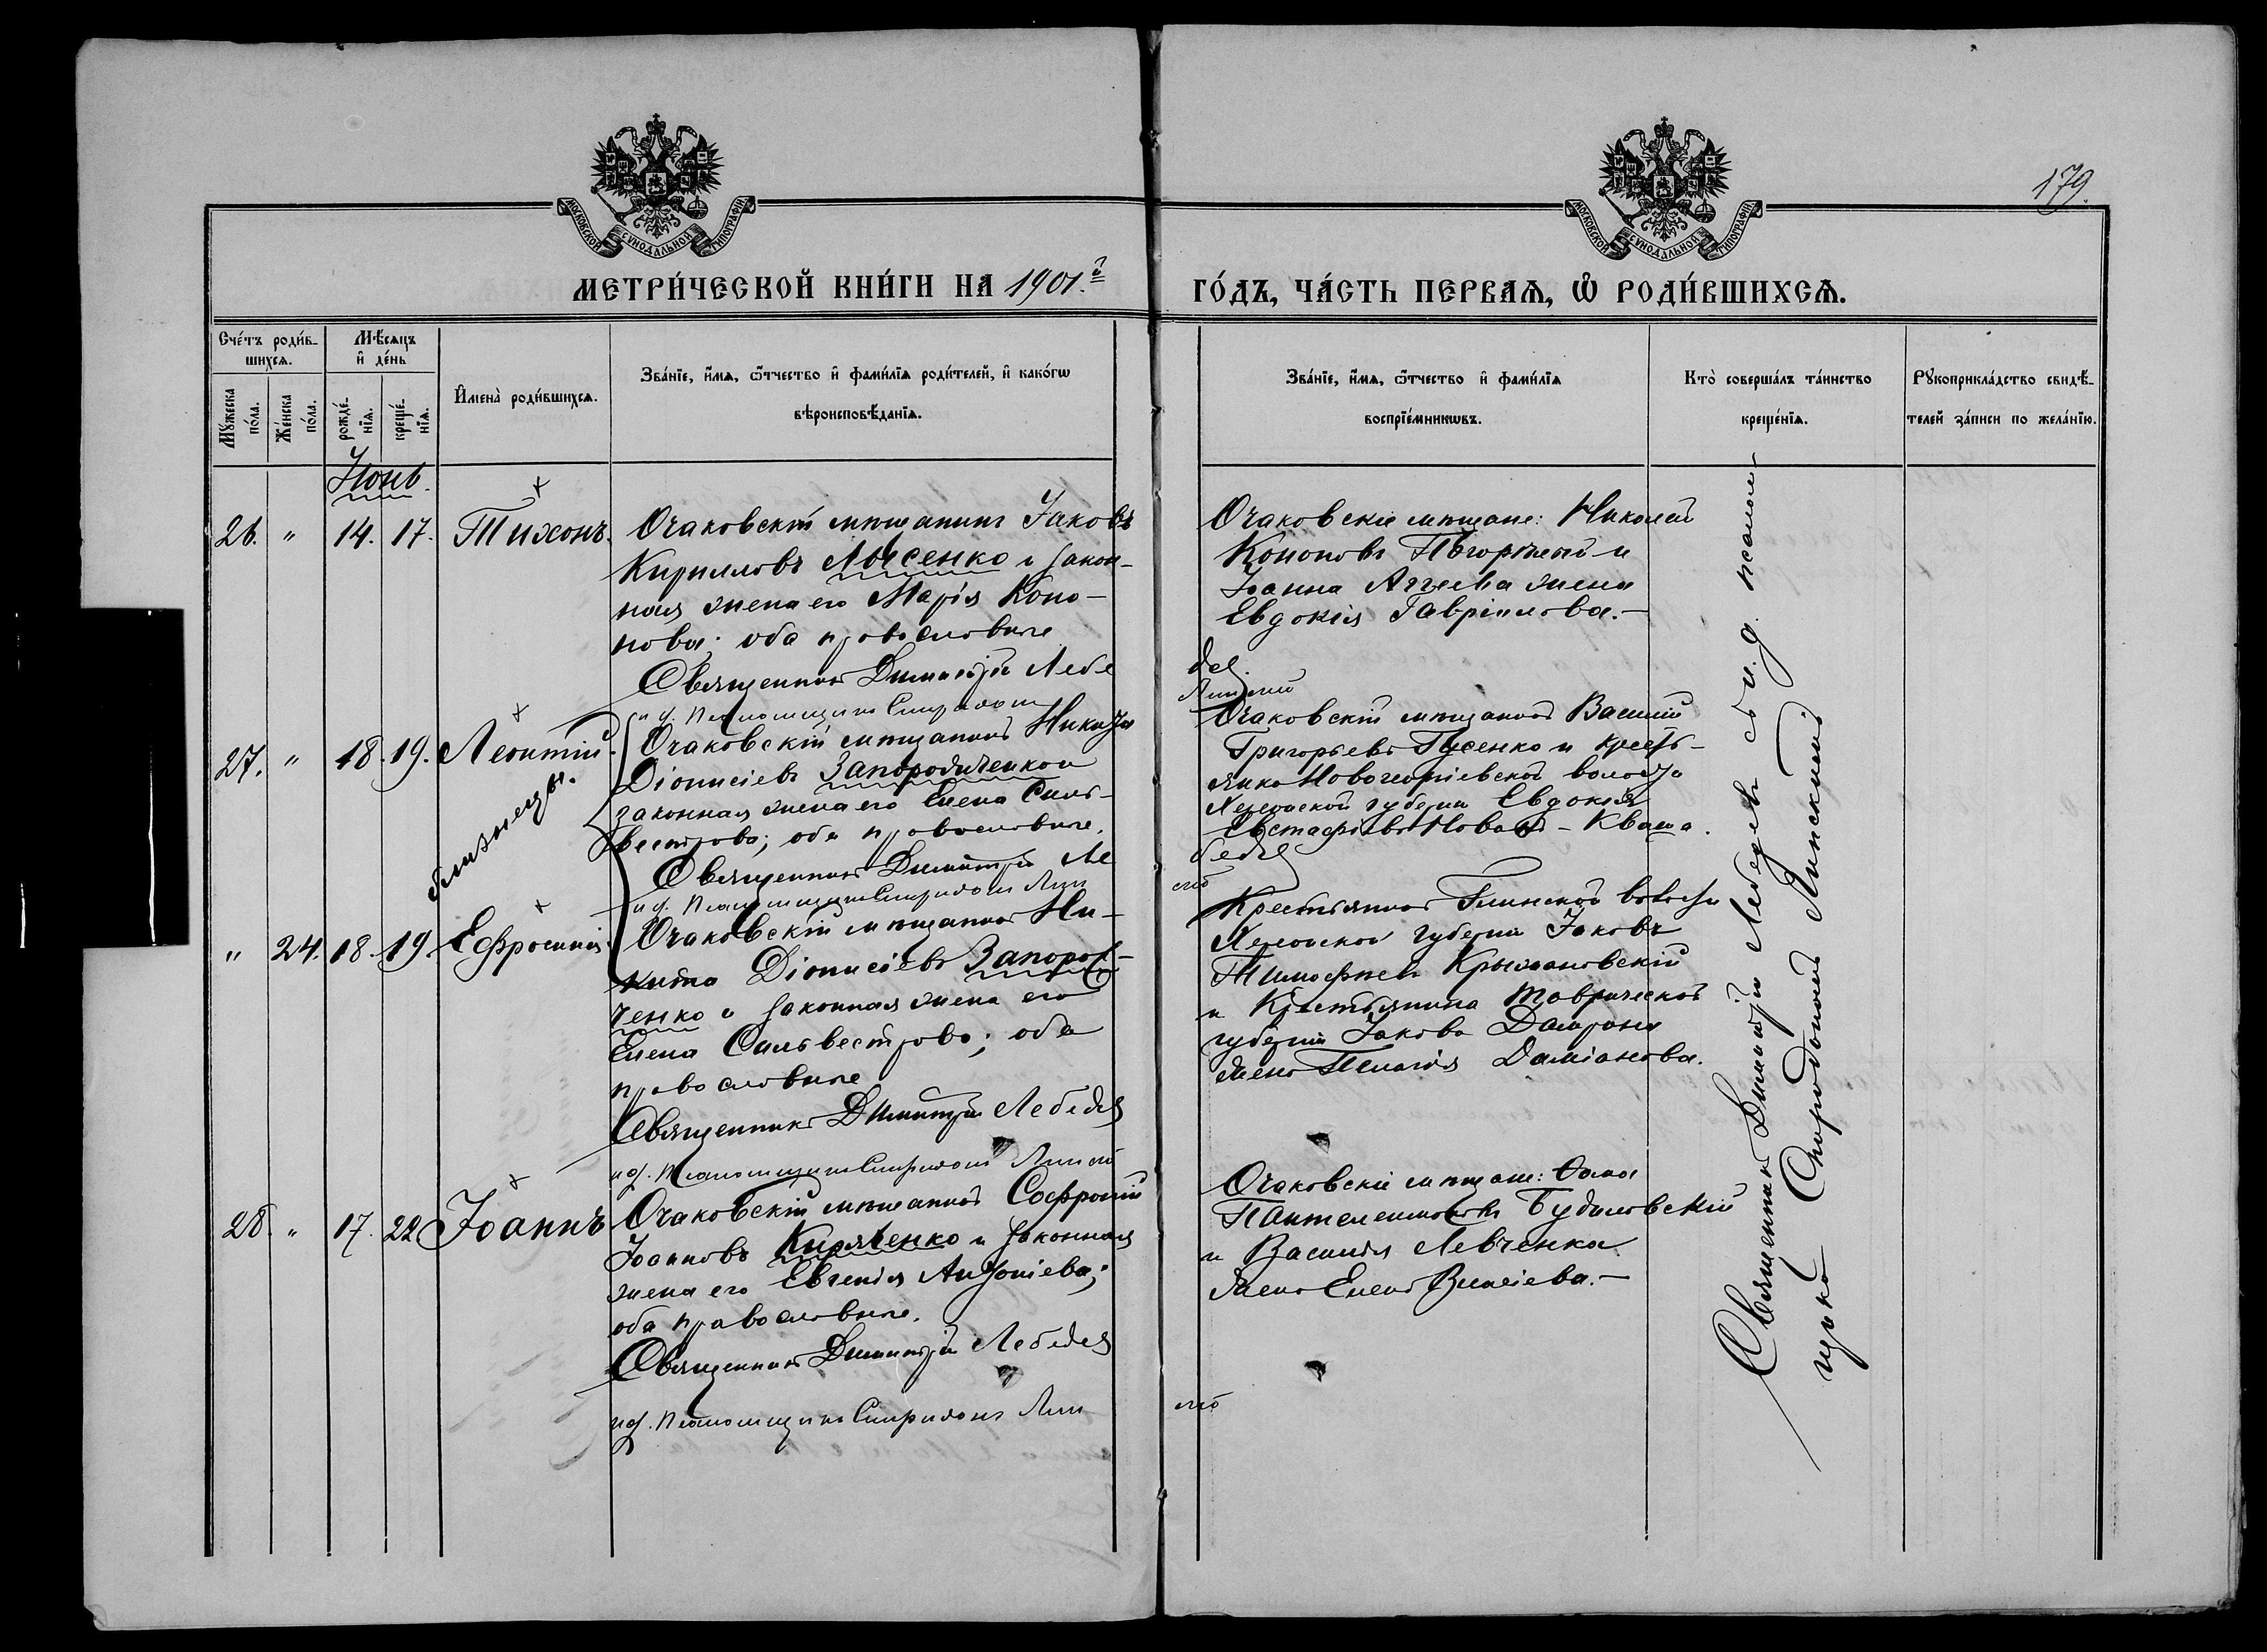 МОСКОВСКОЙ СУНОДАЛЬНОЙ ТИПОГРАФІИ
МОСКОВСКОЙ СУНОДАЛЬНОЙ ТИПОГРАФІИ
179.
МЕТРИ́ЧЕСКОЙ КНИ́ГИ НА 1901.й
ГО́ДЪ, ЧА́СТЬ ПЕРВАѦ, Ѡ РОДИ́ВШИХСѦ.
Сче́тъ роди́в-
шихсѧ.
Мꙋ́жеска по́ла.
Же́нска по́ла.
Мѣ́сѧцъ
и҆ де́нь
рожде́-
нїѧ.
креще́-
нїѧ.
И҆мена̀ роди́вшихсѧ.
Зва́нїе, и҆́мѧ, ѻ҆́тчество и҆ фами́лїѧ роди́телей, и҆ како́гѡ
вѣроисповѣ́данїѧ.
Зва́нїе, и҆́мѧ, ѻ҆́тчество и҆ фами́лїѧ
воспрїе́мникѡвъ.
Кто̀ соверша́лъ та́инство
креще́нїѧ.
Рꙋкоприкла́дство свидѣ́-
телей за́писи по жела́нїю.
Іюнь.
26. " 14. 17. Тихонъ.
Очаковскій мѣщанинъ Іаковъ
Кирилловъ Лысенко и закон-
ная жена его Марія Коно-
нова; оба православные
Священникъ Димитрій Лебе
дев
и д. Псаломщика Спиридонъ
Липскій
Очаковскіе мѣщане: Николай
Кононовъ и
Іоанна жена
Евдокія Гавріилова.—
27. " 18. 19. Леонтій.
близнецы.
Очаковскій мѣщанинъ Никита
Діонисіевъ Запорожченко и
законная жена его Елена Силь-
вестрова; оба православные.
Священникъ Димитрій Ле
бедев
и д. Псаломщика Спиридонъ Лип
скій
Очаковскій мѣщанинъ Василій
Григорьевъ Гусенко и кресть-
янка Новогеоргіевской волости
Херсонской губерніи Евдокія
Евстафіева - Кваша.
" 24. 18. 19. Ефросинія.
Очаковскій мѣщанинъ Ни-
кита Діонисіевъ Запорож-
ченко и законная жена его
Елена Сильвестрова; оба
православные
Священникъ Димитрій Лебедев
и д. Псаломщика Спиридонъ Липскій
Крестьянинъ Глинской волости
Херсонской губерніи Іаковъ
Тимофеевъ Крыжановскій
и Крестьянина Таврической
губерніи Іакова
жена Пелагія Даміанова.
28. " 17. 22 Іоаннъ
Очаковскій мѣщанинъ Софроній
Іоанновъ Кирьченко и законная
жена его Евгенія Антоніева;
оба православные.
Священникъ Димитрій Лебедев
и д. Псаломщика Спиридонъ Лип
скій
Очаковскіе мѣщане: Ѳома
Пантелеимоновъ Будиловскій
и Василія Левченка
жена Елена
Священникъ Димитрій Лебедевъ съ и. д. псаломщ-
щика Спиридономъ Липскимъ